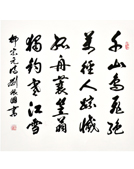 千山鳥飛絕
萬徑人踪滅
孤舟蓑笠翁
獨釣寒江雪
柳宗元